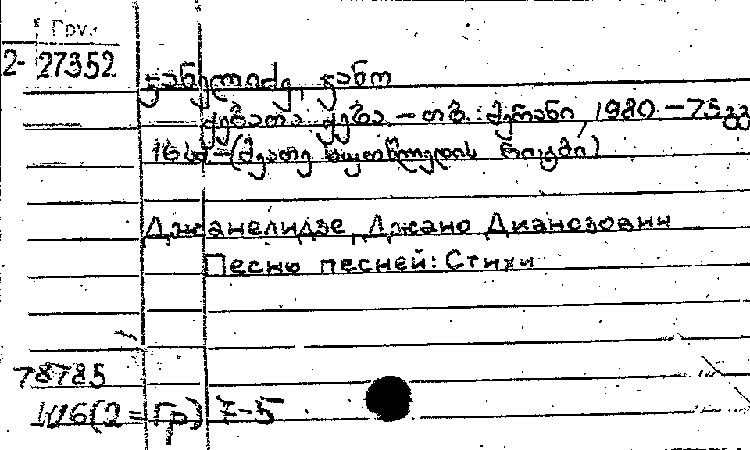 Гру.
2- 27352
ჯანელიძე, ჯანო
ქებათა ქება. – თბ.: მერანი, 1980. – 75 გვ
16 სმ – (მეათე წიგნი)
Джанелидзе, Джано Дианозович
Песнь песней: Стихи
78785
Ш6(2=Гр) 7-5